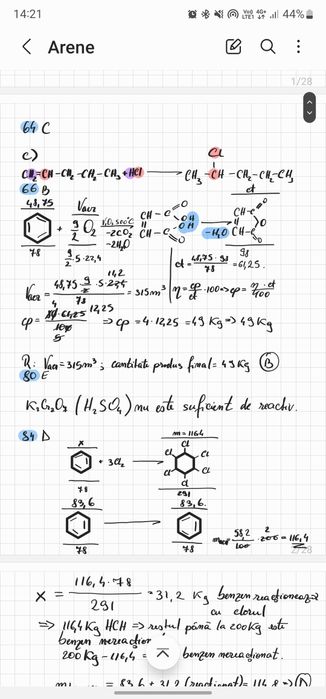 14:21
44%
Arene
1/28
64 C
c)
Cl
CH₂=CH-CH₂-CH₂-CH₃+HCl → CH₃-CH-CH₂-CH₂-CH₃
66 B
48,75
Vaer
9/2 O₂
78
9/2.5.22,4
-2CO₂
-2H₂O
CH-C=O
OH
OH
CH-C=O
-H₂O
CH-C=O
O
CH-C=O
ct
98
ct = 48,75.98/78 = 61,25.
= 315m³
η = cp/ct.100 => cp = η.ct/100
=> cp = 4.12,25 = 49 Kg => 49 Kg
R: Vaer = 315m³; cantitate produs final = 49 Kg (B)
80 E
K₂Cr₂O₇ (H₂SO₄) nu este suficient de reactiv.
84 D
x
+ 3Cl₂ →
m=116,4
Cl
Cl
Cl
Cl
Cl
Cl
78
291
83,6
83,6
78
78
58,2/100 . 200 = 116,4
2/28
x = 116,4.78/291 = 31,2 Kg benzen reacționează
cu clorul
=> 116,4 Kg HCH => restul până la 200 Kg este
benzen nereacționat
200 Kg - 116,4 = benzen nereacționat.
= 83,6 + 31,2 (reacționat) = 114,8 => (D)